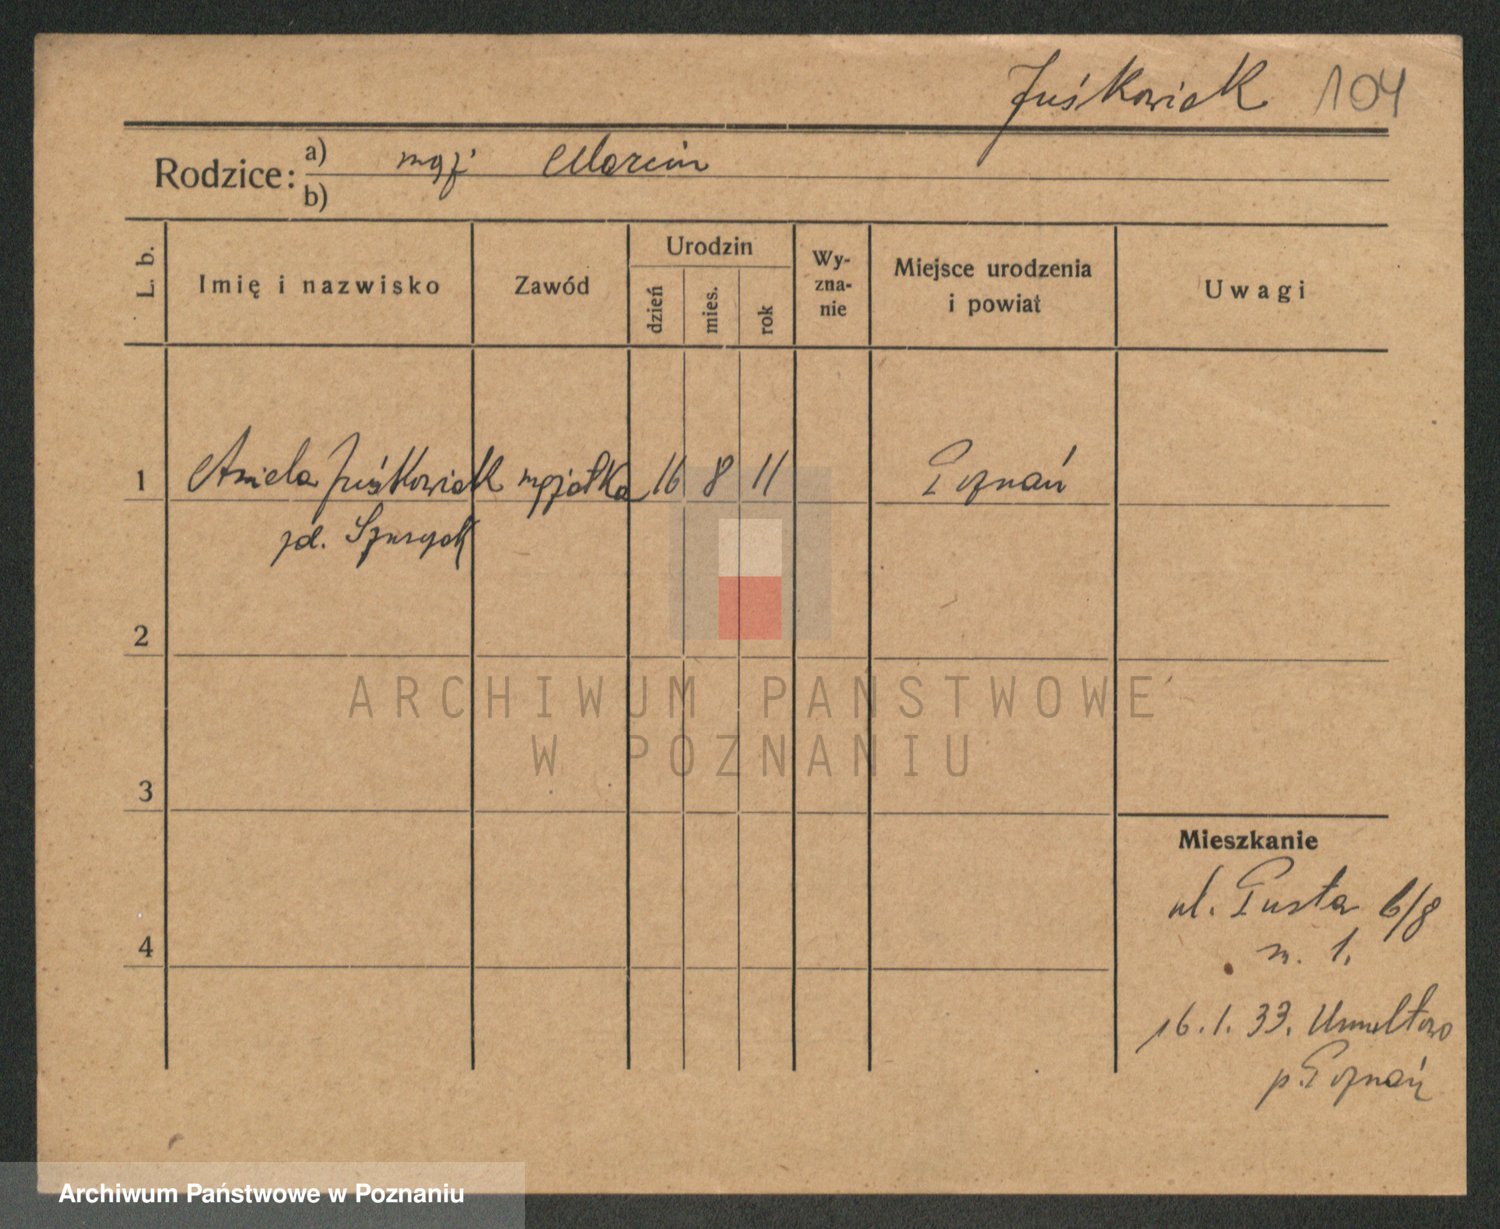 Juśkowiak 104
Rodzice: a) mąż Marcin
b)
L. b.
Imię i nazwisko
Zawód
Urodzin
dzień
mies.
rok
Wy-
zna-
nie
Miejsce urodzenia
i powiat
Uwagi
1 Aniela Juśkowiak mężatka 16 8 11 Poznań
zd. Szurgot
2
3
4
Mieszkanie
ul. Pusta 6/8
m. 1.
16.1.33. Umultowo
p. Poznań
ARCHIWUM PAŃSTWOWE
W POZNANIU
Archiwum Państwowe w Poznaniu